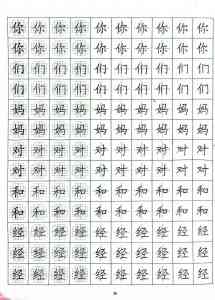 你你你你你你你你你
你你你你你你你你你
们们们们们们们们们
们们们们们们们们们
妈妈妈妈妈妈妈妈妈
妈妈妈妈妈妈妈妈妈
对对对对对对对对对
对对对对对对对对对
和和和和和和和和和
和和和和和和和和和
经经经经经经经经经
经经经经经经经经经
经经经经经经经经经